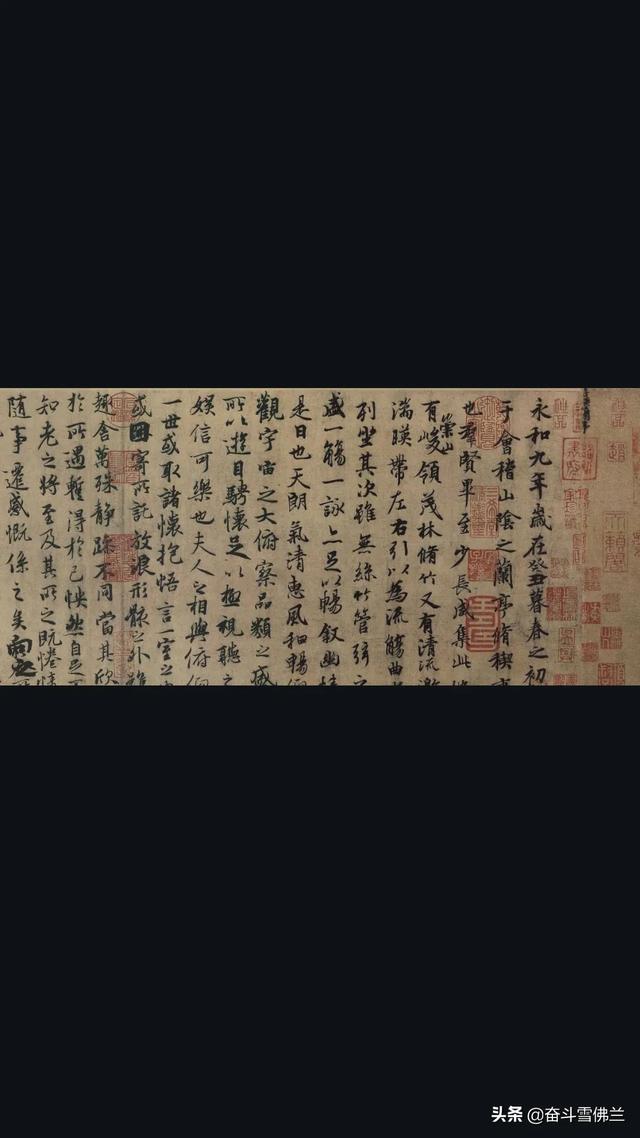 永和九年歲在癸丑暮春之初
于會稽山陰之蘭亭脩稧事
也羣賢畢至少長咸集此
有崇山峻領茂林脩竹又有清流激
湍暎帶左右引以為流觴曲
列坐其次雖無絲竹管弦之
盛一觴一詠亦足以暢敘幽情
是日也天朗氣清惠風和暢仰
觀宇宙之大俯察品類之盛
所以遊目騁懷足以極視聽之
娛信可樂也夫人之相與俯仰
一世或取諸懷抱悟言一室之
或因寄所託放浪形骸之外雖
趣舍萬殊靜躁不同當其欣
於所遇暫得於己怏然自足
知老之將至及其所之既惓情
隨事遷感慨係之矣向之
头条 @奋斗雪佛兰